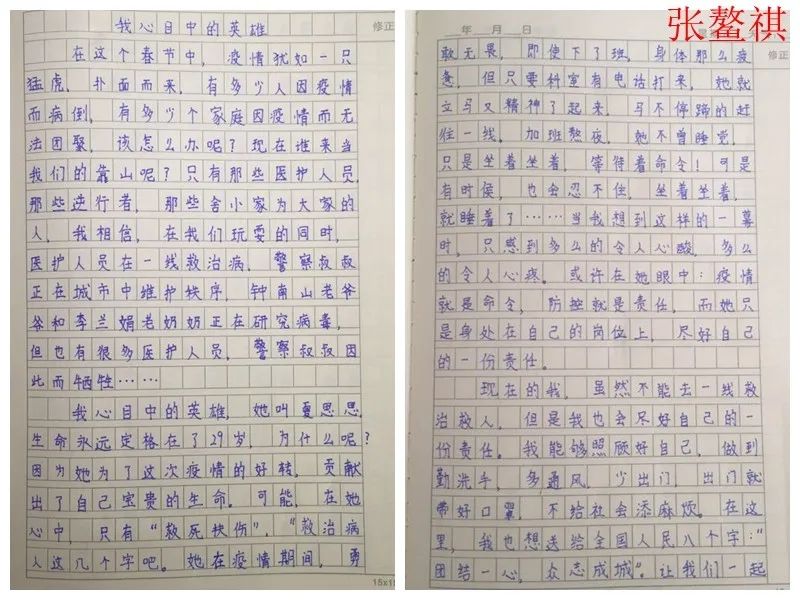 我心目中的英雄
修正
在这个春节中，疫情犹如一只
猛虎，扑面而来，有多少人因疫情
而病倒，有多少个家庭因疫情而无
法团聚，该怎么办呢？现在谁来当
我们的靠山呢？只有那些医护人员，
那些逆行者，那些舍小家为大家的
人，我相信，在我们玩耍的同时，
医护人员在一线救治病，警察叔叔
正在城市中维护秩序，钟南山老爷
爷和李兰娟老奶奶正在研究病毒，
但也有很多医护人员，警察叔叔因
此而牺牲……
我心目中的英雄，她叫夏思思，
生命永远定格在了29岁，为什么呢？
因为她为了这次疫情的好转，贡献
出了自己宝贵的生命。可能，在她
心中，只有“救死扶伤”，“救治病
人这几个字吧。她在疫情期间，勇
15x1
张鳌祺
年 月 日
修正
敢无畏，即使下了班，身体那么疲
惫，但只要科室有电话打来，她就
立马又精神了起来，马不停蹄的赶
往一线，加班熬夜，她不曾睡觉，
只是坐着坐着，等待着命令！可是
有时侯，也会忍不住，坐着坐着，
就睡着了……当我想到这样的一幕
时，只感到多么的令人心酸，多么
的令人心疼。或许在她眼中：疫情
就是命令，防控就是责任，而她只
是身处在自己的岗位上，尽好自己
的一份责任。
现在的我，虽然不能去一线救
治救人，但是我也会尽好自己的一
份责任。我能够照顾好自己，做到
勤洗手，多通风，少出门，出门就
带好口罩，不给社会添麻烦。在这
里，我也想送给全国人民八个字：“
团结一心，众志成城”。让我们一起